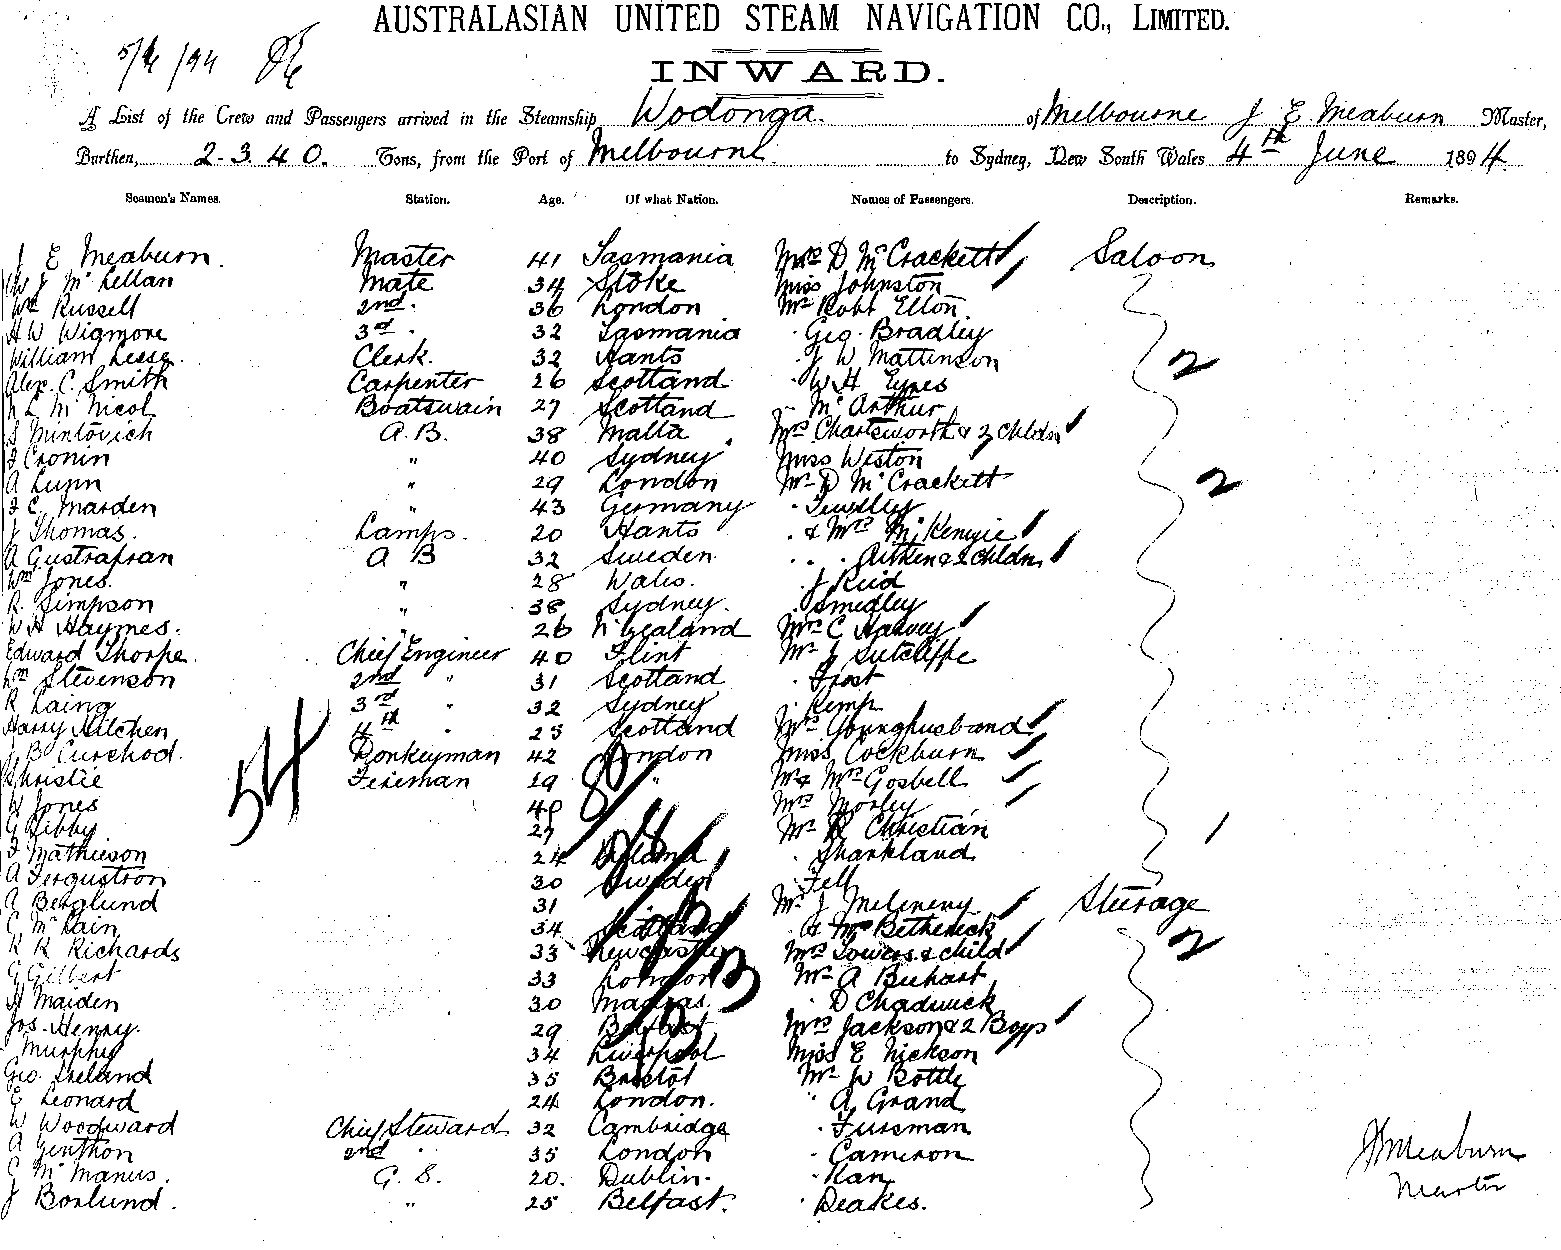 AUSTRALASIAN UNITED STEAM NAVIGATION CO., LIMITED.
5/6/94
INWARD.
A List of the Crew and Passengers arrived in the Steamship Wodonga. of Melbourne J E Meaburn Master,
Burthen, 2.340. Tons, from the Port of Melbourne to Sydney, New South Wales 4th June 1894.
Seamen's Names. Station. Age. Of what Nation. Names of Passengers. Description. Remarks.
J E Meaburn. Master 41 Tasmania Mrs D McCrackett Saloon
W J McLellan Mate 34 Stoke Miss Johnston
Wm Russell 2nd. 36 London Mr Robt Elton.
H W Wigmore 3rd. 32 Tasmania . Geo Bradley
William Leese. Clerk. 32 Hants . J W Mattinson 2
Alex. C. Smith Carpenter 26 Scotland . W H Eyres
McNicol Boatswain 27 Scotland . McArthur
S Mintovich A.B. 38 Malta Mrs Chartsworth & 2 Chldn
J Cronin " 40 Sydney Miss Weston
A Lunn " 29 London Mr D McCrackett 2
F C Marden " 43 Germany
J Thomas. Lamps. 20 Hants . & Mrs McKenzie
A Gustafsan A B 32 Sweden . . . Aitken & 2 chldn
Wm Jones. " 28 Wales. . J Reid
R. Simpson " 38 Sydney. . Smedley
W H Haymes. " 26 N Zealand Mrs C Harvey
Edward Thorpe. Chief Engineer 40 Flint Mr J Sutcliffe
Wm Stevenson 2nd " 31 Scotland . Frost
R Laing 3rd " 32 Sydney . Kemp
Harry Kitchen 4th . 25 Scotland Mrs Younghusband
J B Curchod. Donkeyman 42 London Miss Cockburn
Christie Fireman 19 " Mr & Mrs Gosbell
W Jones 40 Mrs Morley
G Libby. 27 Mr R Christian
54
F Mathieson 24 Ireland . Sharkland
A Fergustron 30 Sweden . Fell
A Berglund 31 Mr J McEneny Sterage
C McLain 34 Scotland & Mrs Betherick
R R Richards 33 Newcastle Mrs Sowers & child 2
G Gilbert 33 London Mr A
H Maiden 30 Madras. . D Chadwick
Jos. Henry. 29 Belfast Mrs Jackson & 2 Boys
Murphy 34 Liverpool Miss E Nickson
Geo. Ireland 35 Bristol Mr W Bottle
E Leonard 24 London. " A Grand
W Woodward Chief Steward 32 Cambridge . Fursman
A Genthon 2nd " 35 London . Cameron
C McManus. G. S. 20. Dublin. . Kan
J Borlund. " 25 Belfast. . Deakes.
J E Meaburn
Master